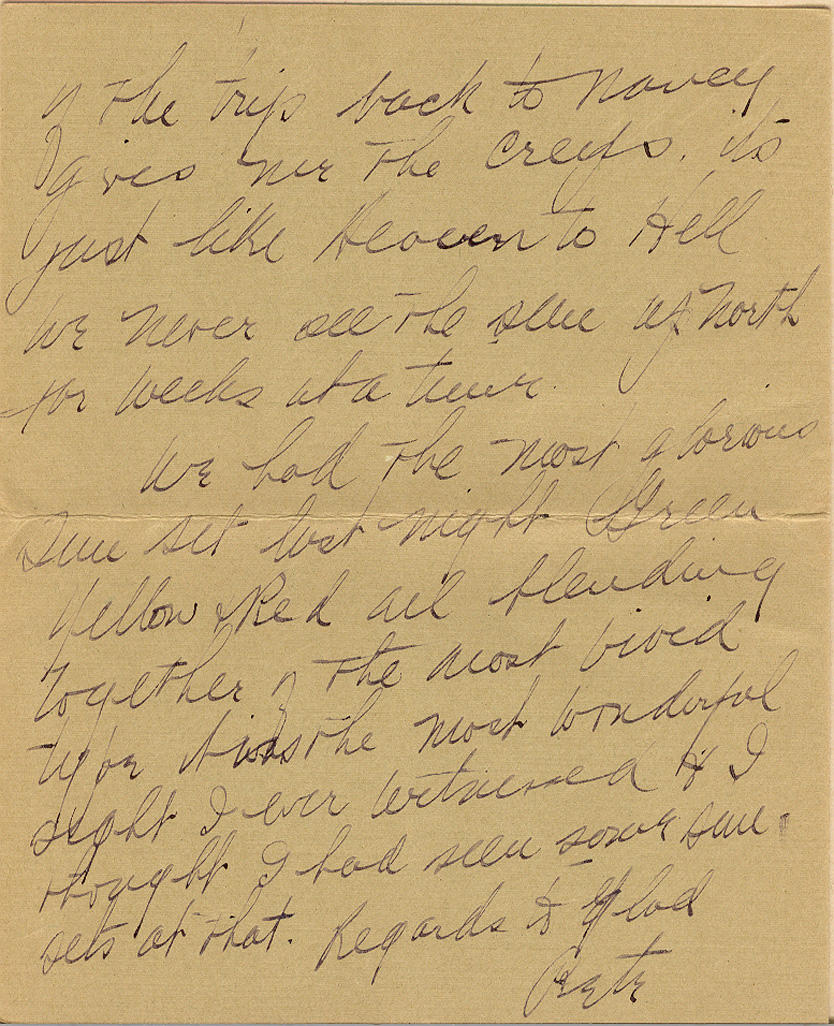 of the trip back to Nancy
gives me the creeps. its
just like Heaven to Hell
we never see the sun up North
for weeks at a time.
We had the most glorious
sun set last night Green
Yellow & Red all blending
together of the most vivid
type it was the most wonderful
sight I ever witnessed & I
thought I had seen some sun
sets at that. Regards to Glad
Pete